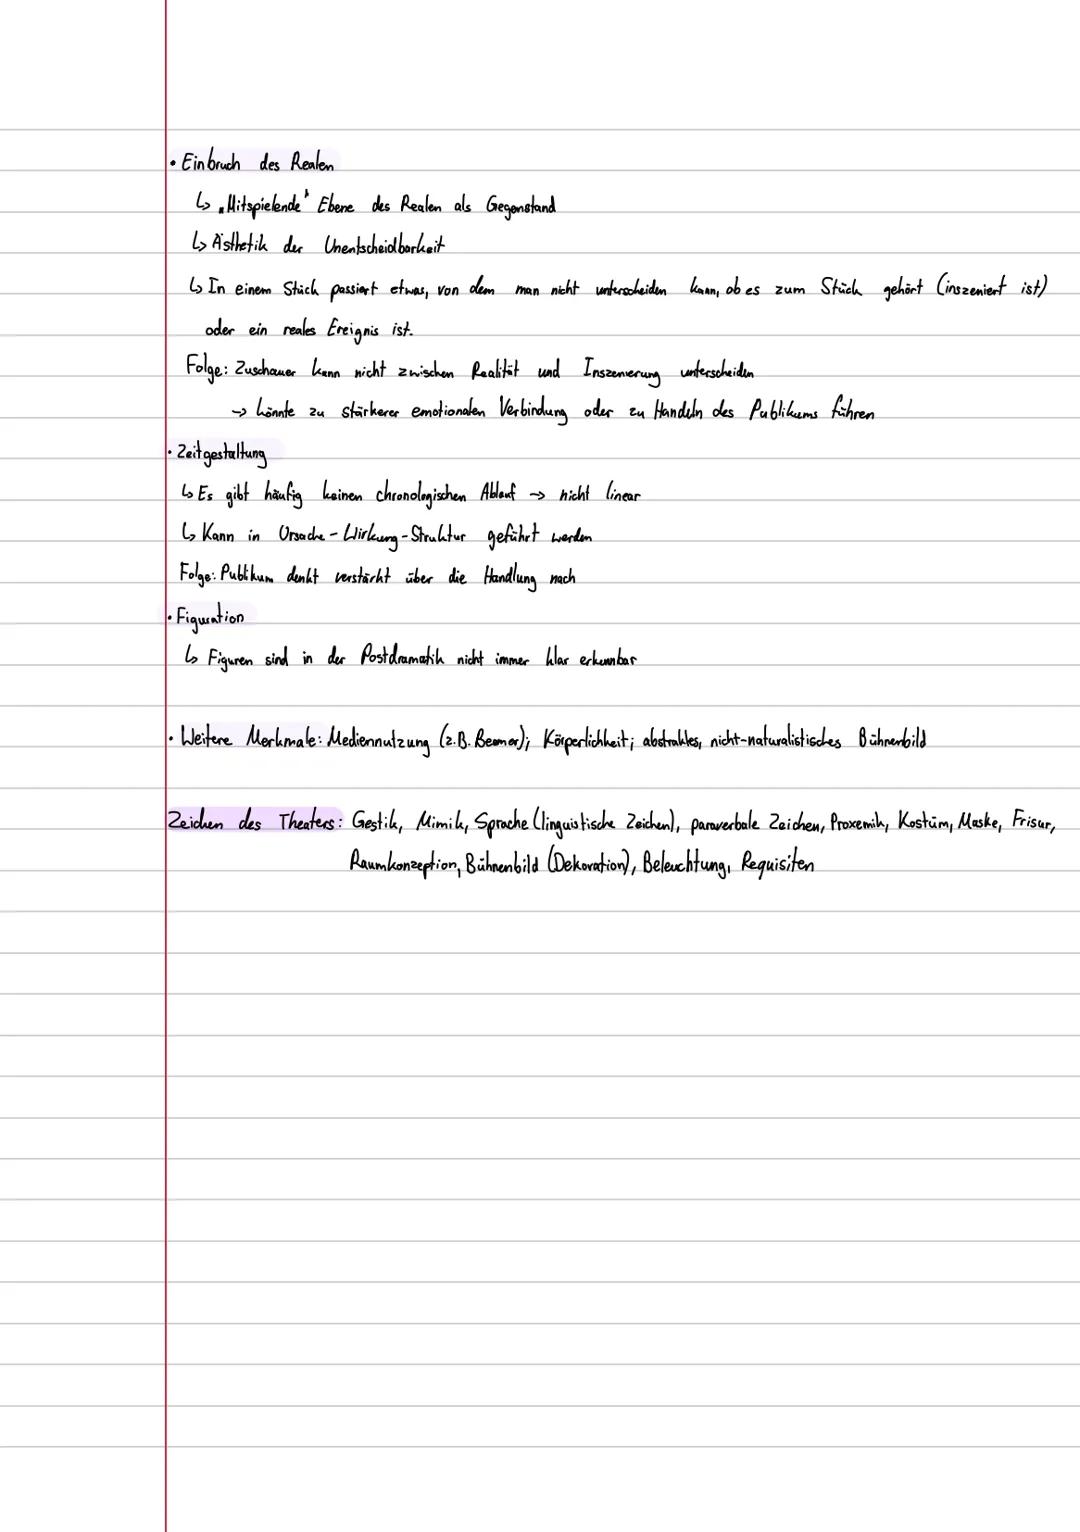 • Einbruch des Realen
↳ „Mitspielende" Ebene des Realen als Gegenstand
↳ Ästhetik der Unentscheidbarkeit
↳ In einem Stück passiert etwas, von dem man nicht unterscheiden kann, ob es zum Stück gehört (inszeniert ist)
oder ein reales Ereignis ist.
Folge: Zuschauer kann nicht zwischen Realität und Inszenierung unterscheiden
→ könnte zu stärkerer emotionalen Verbindung oder zu Handeln des Publikums führen
• Zeitgestaltung
↳ Es gibt häufig keinen chronologischen Ablauf → nicht linear
↳ Kann in Ursache-Wirkung-Struktur geführt werden
Folge: Publikum denkt verstärkt über die Handlung nach
• Figuration
↳ Figuren sind in der Postdramatik nicht immer klar erkennbar
• Weitere Merkmale: Mediennutzung (z.B. Beamer); Körperlichkeit; abstraktes, nicht-naturalistisches Bühnenbild
Zeichen des Theaters: Gestik, Mimik, Sprache (linguistische Zeichen), paraverbale Zeichen, Proxemik, Kostüm, Maske, Frisur,
Raumkonzeption, Bühnenbild (Dekoration), Beleuchtung, Requisiten